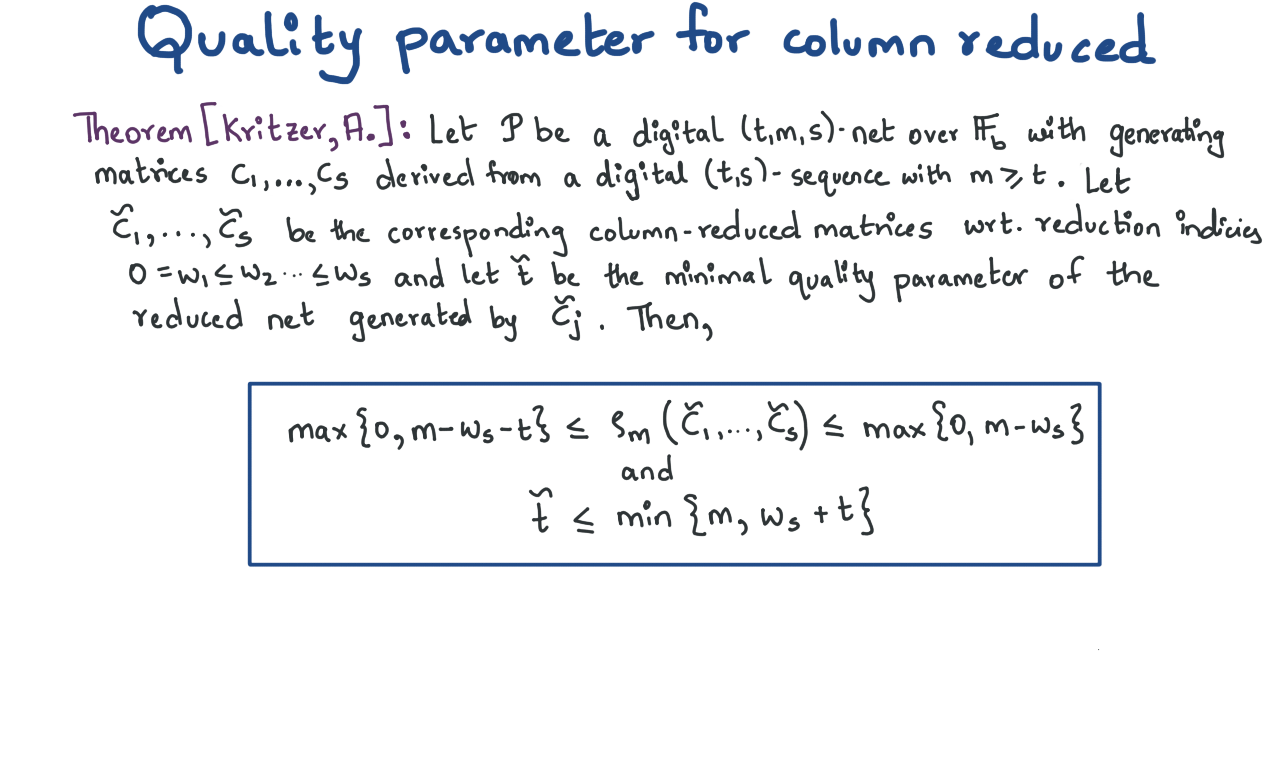 Quality parameter for column reduced
Theorem [Kritzer, A.]: Let P be a digital (t,m,s)-net over 𝔽_b with generating
matrices C₁,...,Cₛ derived from a digital (t,s)-sequence with m ≥ t. Let
C̃₁,...,C̃ₛ be the corresponding column-reduced matrices wrt. reduction indicies
0 = w₁ ≤ w₂ ... ≤ wₛ and let t̃ be the minimal quality parameter of the
reduced net generated by C̃ⱼ. Then,
max{0, m-wₛ-t} ≤ ρₘ(C̃₁,...,C̃ₛ) ≤ max{0, m-wₛ}
and
t̃ ≤ min{m, wₛ + t}